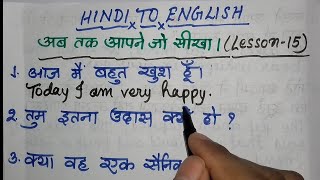 HINDI TO ENGLISH
अब तक आपने जो सीखा। (Lesson-15)
1. आज मैं बहुत खुश हूँ।
Today I am very happy.
2. तुम इतना उदास क्यों हो ?
3. क्या वह एक सैनिक